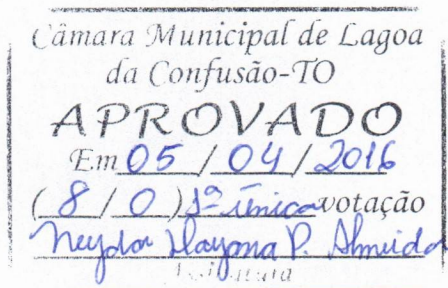 Câmara Municipal de Lagoa
da Confusão-TO
APROVADO
Em 05 / 04 / 2016
( 8 / 0 ) 1ª única votação
P. Almeida
Assinatura